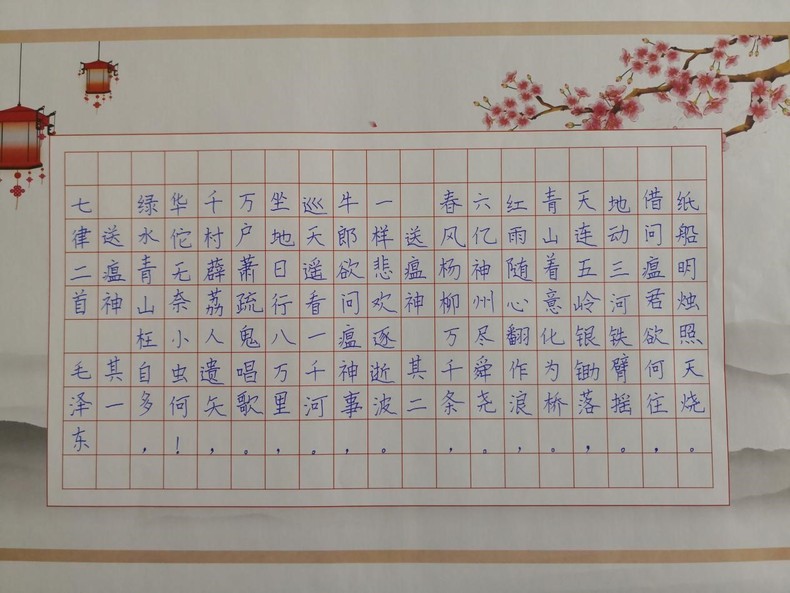 七律二首 毛泽东
送瘟神 其一
绿水青山枉自多，
华佗无奈小虫何！
千村薜荔人遗矢，
万户萧疏鬼唱歌。
坐地日行八万里，
巡天遥看一千河。
牛郎欲问瘟神事，
一样悲欢逐逝波。
送瘟神 其二
春风杨柳万千条，
六亿神州尽舜尧。
红雨随心翻作浪，
青山着意化为桥。
天连五岭银锄落，
地动三河铁臂摇。
借问瘟君欲何往，
纸船明烛照天烧。